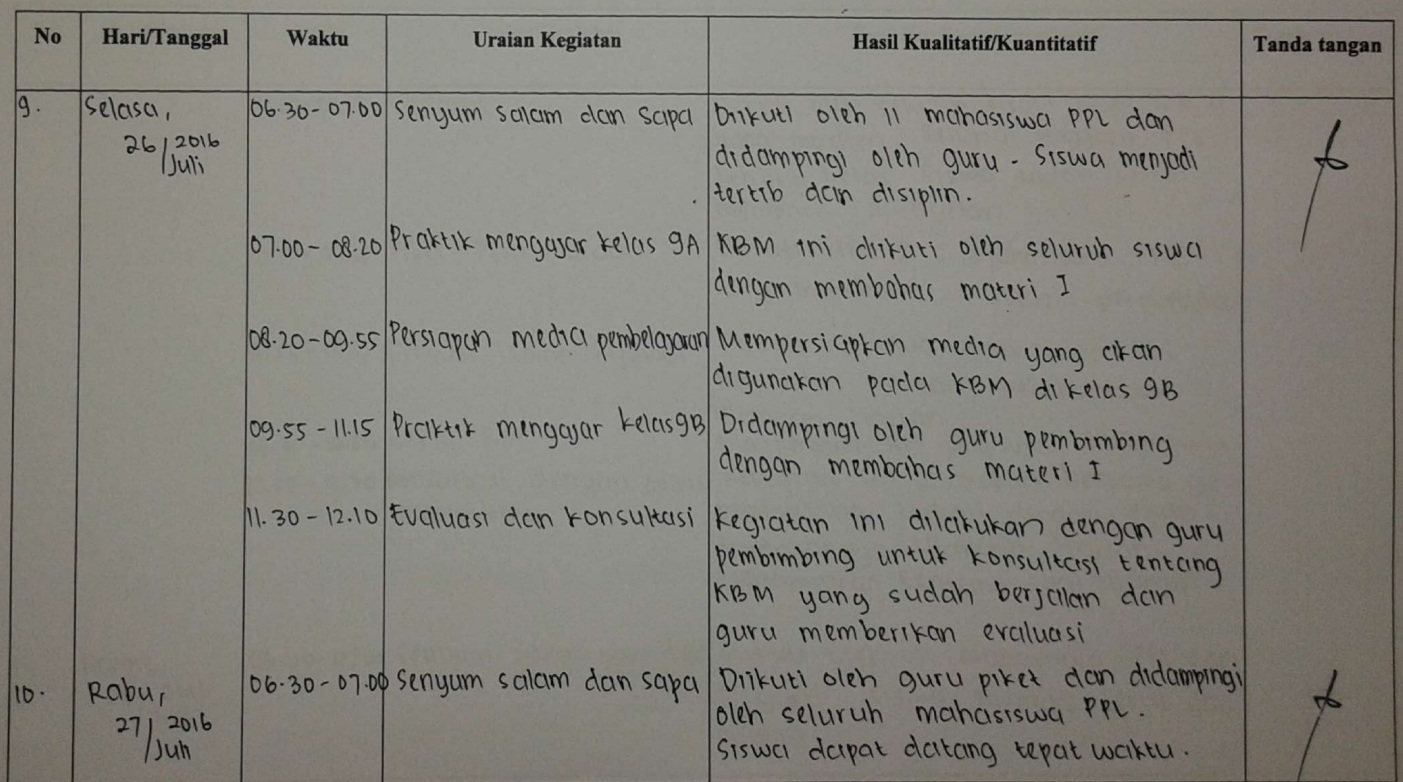 No Hari/Tanggal Waktu Uraian Kegiatan Hasil Kualitatif/Kuantitatif Tanda tangan
9. Selasa, 06.30 - 07.00 Senyum salam dan sapa Diikuti oleh 11 mahasiswa PPL dan
26/Juli 2016 didampingi oleh guru. Siswa menjadi
tertib dan disiplin.
07.00 - 08.20 Praktik mengajar kelas 9A KBM ini diikuti oleh seluruh siswa
dengan membahas materi I
08.20 - 09.55 Persiapan media pembelajaran Mempersiapkan media yang akan
digunakan pada KBM di kelas 9B
09.55 - 11.15 Praktik mengajar kelas 9B Didampingi oleh guru pembimbing
dengan membahas materi I
11.30 - 12.10 Evaluasi dan konsultasi Kegiatan ini dilakukan dengan guru
pembimbing untuk konsultasi tentang
KBM yang sudah berjalan dan
guru memberikan evaluasi
10. Rabu, 06.30 - 07.00 Senyum salam dan sapa Diikuti oleh guru piket dan didampingi
27/Juli 2016 oleh seluruh mahasiswa PPL.
Siswa dapat datang tepat waktu.